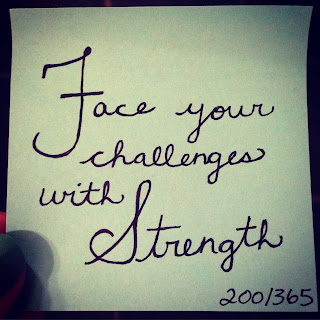 Face your
challenges
with
Strength
200/365